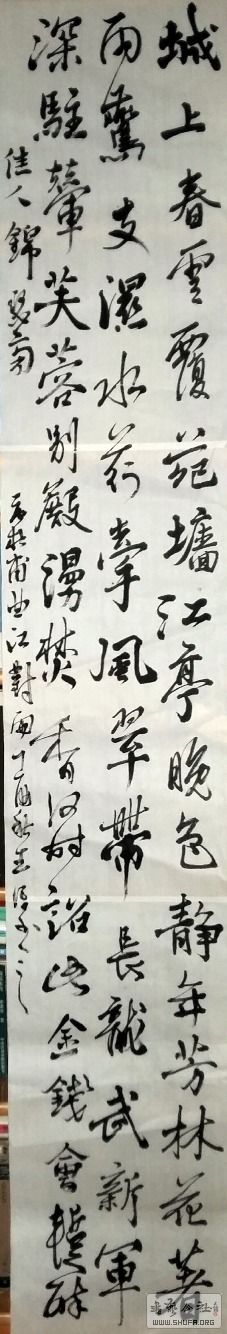 城上春雲覆苑墻江亭晚色靜年芳林花著
雨燕支濕水荇牽風翠帶長龍武新軍
深駐輦芙蓉別殿漫焚香何時詔此金錢會暫醉
佳人錦瑟旁
杜甫曲江對雨丁酉秋
WWW.SHUFA.ORG